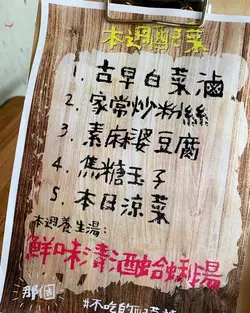 本週配菜
1. 古早白菜滷
2. 家常炒粉絲
3. 素麻婆豆腐
4. 焦糖玉子
5. 本日涼菜
本週養生湯:
鮮味清酒蛤蜊湯
那個
#不吃的